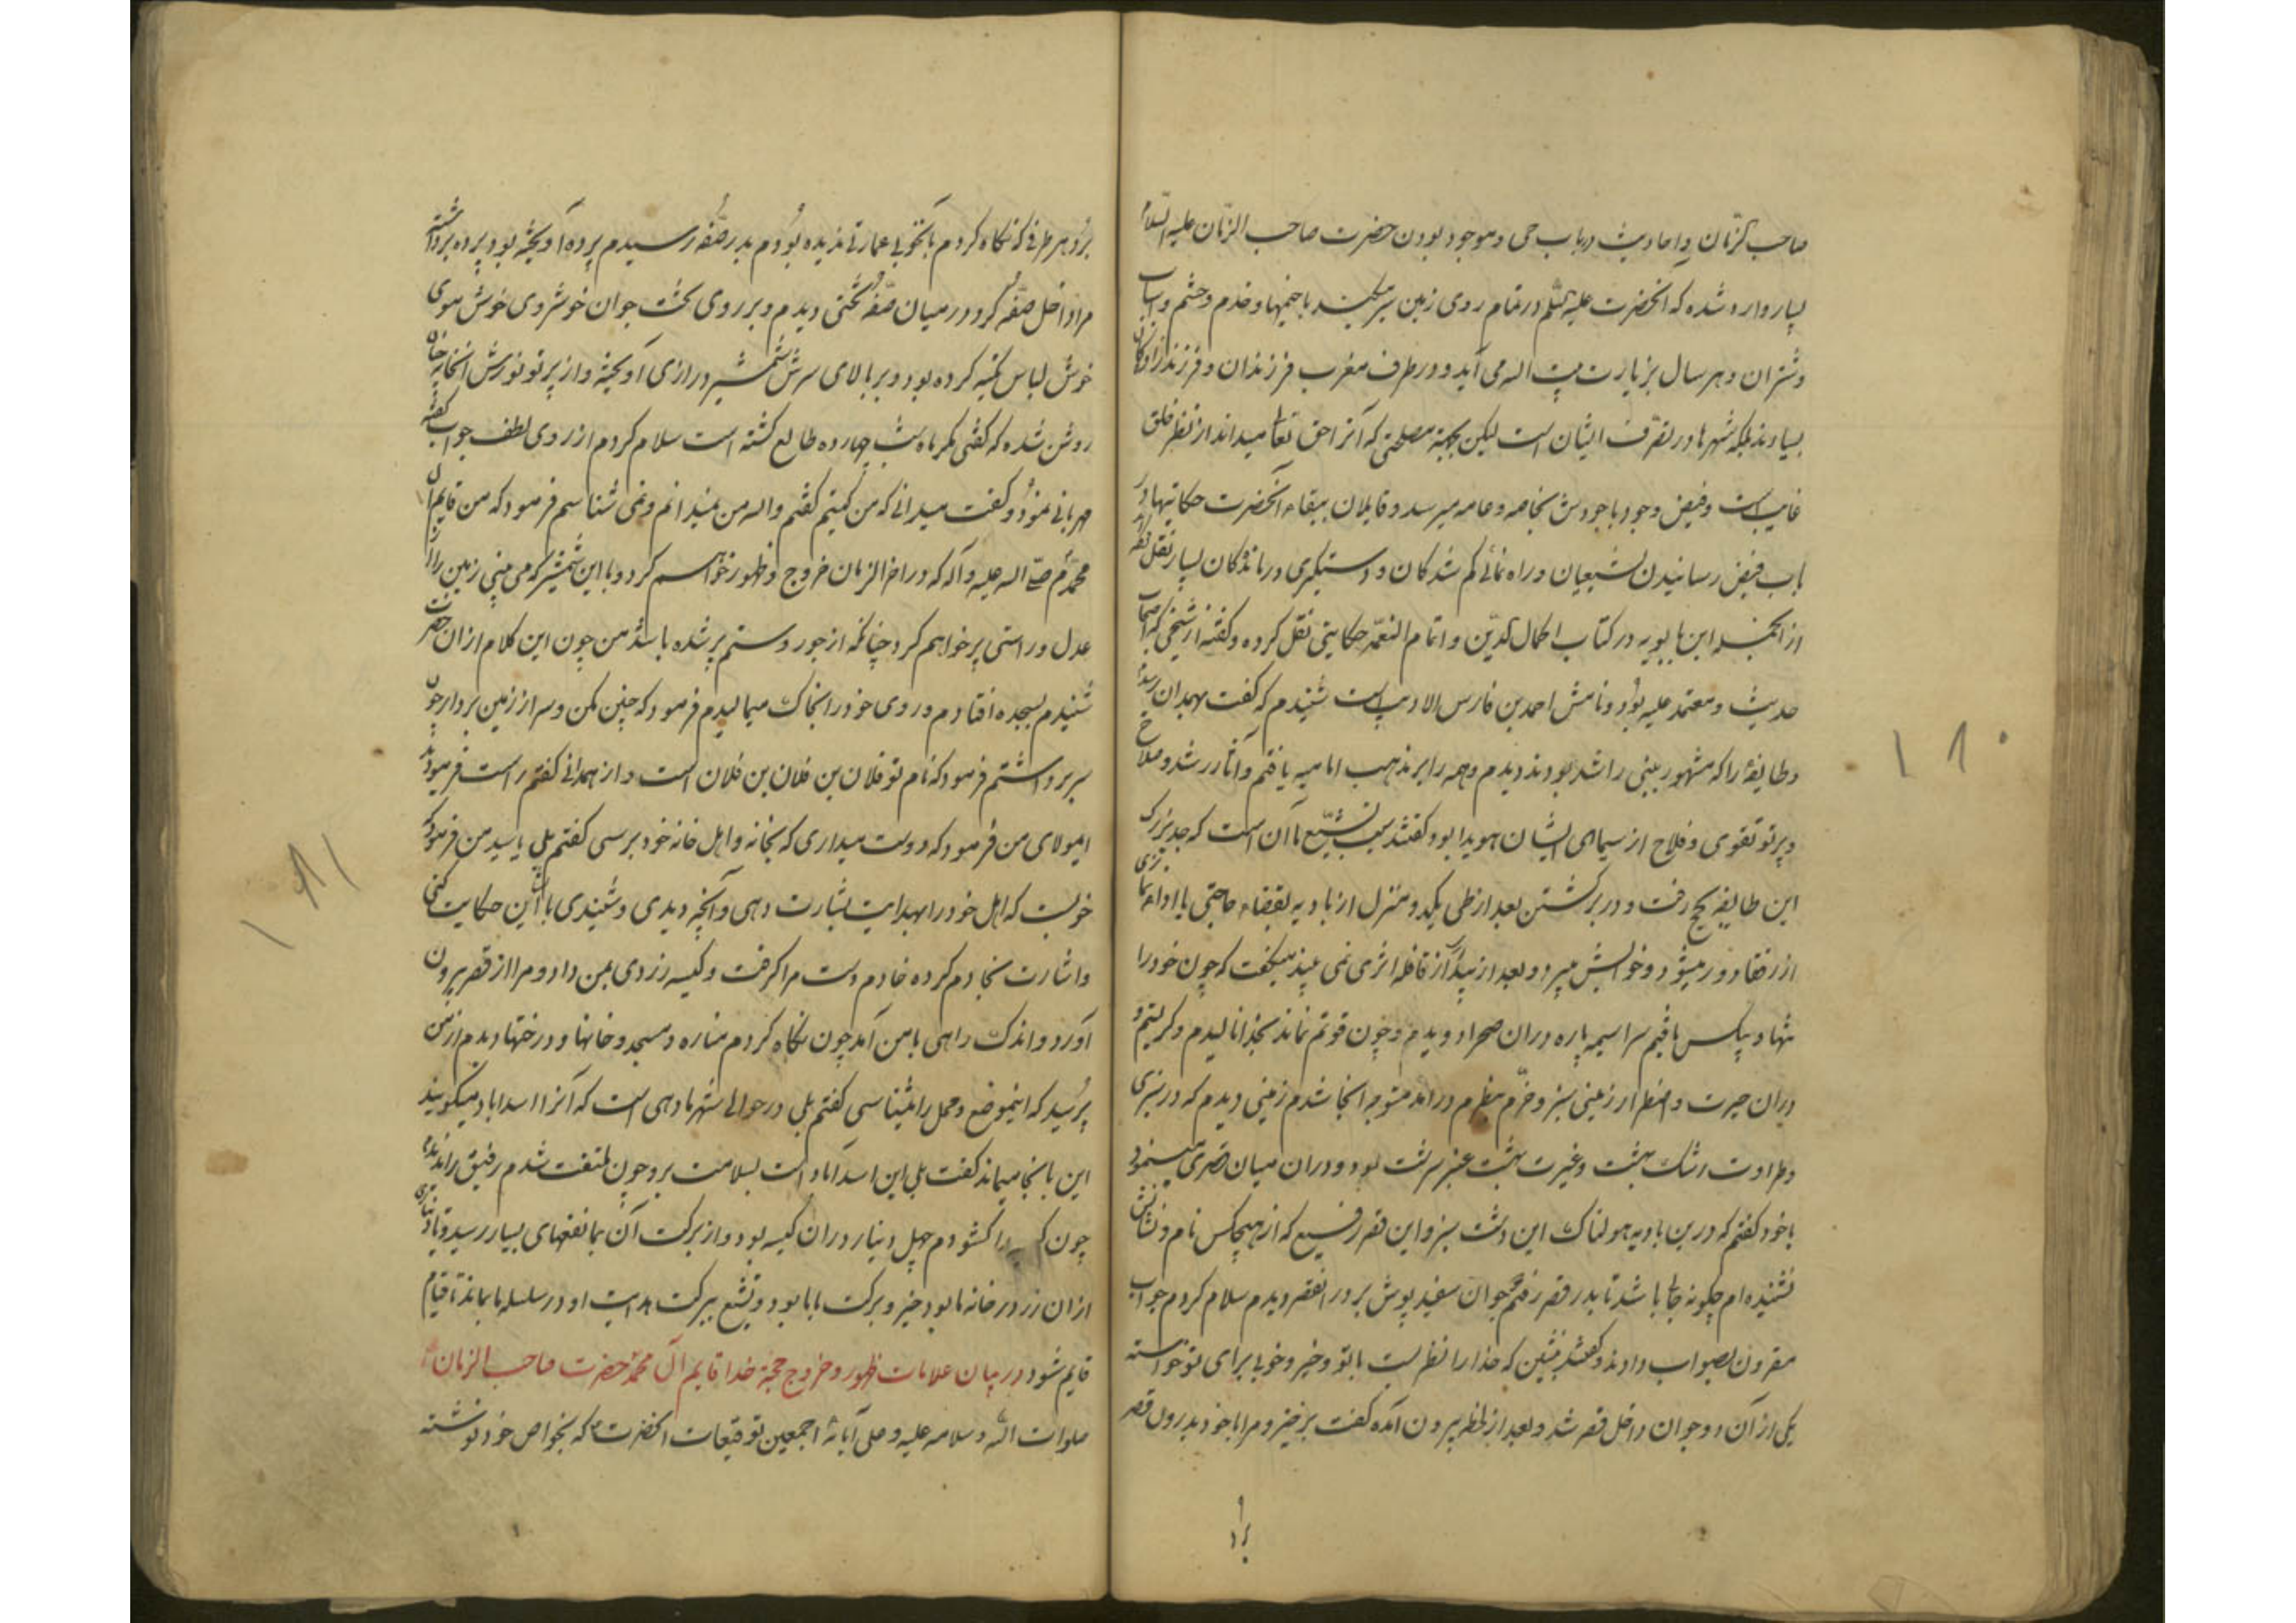 صاحب الزمان و احادیث در باب حی و موجود بودن حضرت صاحب الزمان علیه السلام
بسیار وارد شده که آنحضرت علیه السلم در تمام روی زمین سیر میکند با خیمها و خدم و حشم و اسباب
و شتران و هر سال بزیارت بیت الله می آید و در طرف مغرب فرزندان و فرزندزادگان
بسیارند بلکه شهرها در تصرف ایشان است لیکن بجهة مصلحتی که آنرا حق تعالی میداند از نظر خلق
غایب است و فیض وجود باجودش بخاصه و عامه میرسد و قایلان ببقاء آنحضرت حکایتها در
باب فیض رسانیدن بشیعیان و راه نمائی کم شدکان و دستکیری درماندکان بسیار نقل
از انجمله ابن بابویه در کتاب اکمال الدین و اتمام النعمه حکایتی نقل کرده و کفته از شیخی که اصحاب
حدیث و معتمد علیه بود و نامش احمد بن فارس الادیب است شنیدم که کفت بهمدان رسیدم
و طایفهٔ را که مشهور ببنی راشد بودند دیدم و همه را بر مذهب امامیه یافتم و آثار رشد و صلاح
و پرتو تقوی و فلاح از سیمای ایشان هویدا بود کفتند سبب تشیع ما آن است که جد بزرک
این طایفه بحج رفت و در برکشتن بعد از طی یکدو منزل از بادیه بقضاء حاجتی یا اداء نمازی
از رفقا دور میشود و خوابش میبرد و بعد از بیداری از قافله اثری نمی بیند میکفت که چون خود را
تنها و بیکس یافتم سراسیمه پاره دران صحرا دویدم و چون قوتم نماند بخدا نالیدم و کریستم و
دران حیرت و اضطرار زمینی سبز و خرم بنظرم درآمد متوجه انجا شدم زمینی دیدم که در سبزی
و طراوت رشک بهشت و غیرت بهشت عنبر سرشت بود و دران میان قصری مینمود
با خود کفتم که درین بادیه هولناک این دشت سبز و این قصر رفیع که از هیچکس نام و نشانش
نشنیده ام چکونه جائی باشد تا بدر قصر رفتم دو جوان سفید پوش بر در انقصر دیدم سلام کردم جواب
مقرون بصواب دادند و کفتند بنشین که خدا را نظریست با تو و خیر و خوبی برای تو خواسته
یکی از آن دو جوان داخل قصر شد و بعد از لحظه بیرون آمده کفت برخیز و مرا با خود بدرون قصر
برد
۱۱۰
برد و هر طرفی که نکاه کردم بآنخوبی عمارتی ندیده بودم بدر صفه رسیدم پرده آویخته بود پرده برداشته
مرا داخل صفه کرد در میان صفه تختی دیدم و بر روی تخت جوان خوشروی خوش موی
خوش لباس تکیه کرده بود و بر بالای سرش شمشیر درازی آویخته و از پرتو نورش انخانه چنان
روشن شده که کفتی مکر ماه شب چهارده طالع کشته است سلام کردم از روی لطف جواب کفته
مهربانی نمود و کفت میدانی که من کیستم کفتم والله من نمیدانم و نمی شناسم فرمود که من قایم آل
محمدم صلی الله علیه و آله که در اخر الزمان خروج و ظهور خواهم کرد و با این شمشیر که می بینی زمین را از
عدل و راستی پر خواهم کرد چنانکه از جور و ستم پر شده باشد من چون این کلام از ان حضرت
شنیدم بسجده افتادم و روی خود را بخاک میمالیدم فرمود که چنین مکن و سر از زمین بردار چون
سر برداشتم فرمود که نام تو فلان بن فلان بن فلان است و از همدانی کفتم راست فرمودید
ایمولای من فرمود که دوست میداری که بخانه و اهل خانه خود برسی کفتم بلی یا سید من فرمود که
خوبست که اهل خود را بهدایت بشارت دهی و آنچه دیدی و شنیدی بایشان حکایت کنی
و اشارت بخادم کرده خادم دست مرا کرفت و کیسه زردی بمن داد و مرا از قصر بیرون
آورد و اندک راهی با من آمد چون نکاه کردم مناره و مسجد و خانها و درختها دیدم از من
پرسید که اینموضع و محل را میشناسی کفتم بلی در حوالی شهر ما دهی است که آنرا اسداباد میکویند
این بانجا میماند کفت بلی این اسدآباد است بسلامت برو چون ملتفت شدم رفیق را ندیدم
چون را کشودم چهل دینار دران کیسه بود و از برکت آن بما نفعهای بسیار رسید و تا دیناری
از ان زر در خانه ما بود خیر و برکت با ما بود و تشیع ببرکت هدایت او در سلسله ما بماند تا قیام
قایم شود در بیان علامات ظهور و خروج حجة خدا قایم آل محمد حضرت صاحب الزمان
صلوات الله و سلامه علیه و علی آبائه اجمعین توقیعات آنحضرت که بخواص خود نوشته
۱۱۱